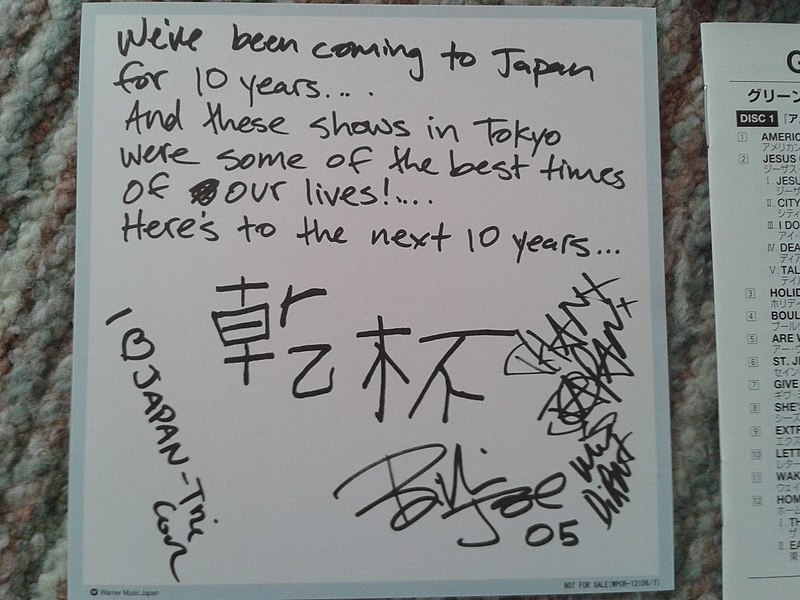 We've been coming to Japan
for 10 years....
And these shows in Tokyo
were some of the best times
of our lives!....
Here's to the next 10 years...
乾杯
I ♡ JAPAN-Tré
Cool
Billie Joe
05
Warner Music Japan
NOT FOR SALE(WPCR-12106/7)
G
グリーン
DISC 1 「ア
1 AMERIC
アメリカン
2 JESUS
ジーザス
I. JESU
ジーザ
II. CITY
シティ
III. I DO
アイ・
IV. DEA
ディア
V. TAL
テイル
3 HOLID
ホリデイ
4 BOUL
ブール
5 ARE W
アー・ウ
6 ST. JI
セイン
7 GIVE
ギヴ・ミ
8 SHE'
シーズ
9 EXTR
エクス
10 LETT
レター
11 WAK
ウェイ
12 HOM
ホーム
I. TH
ザ
II. EA
東